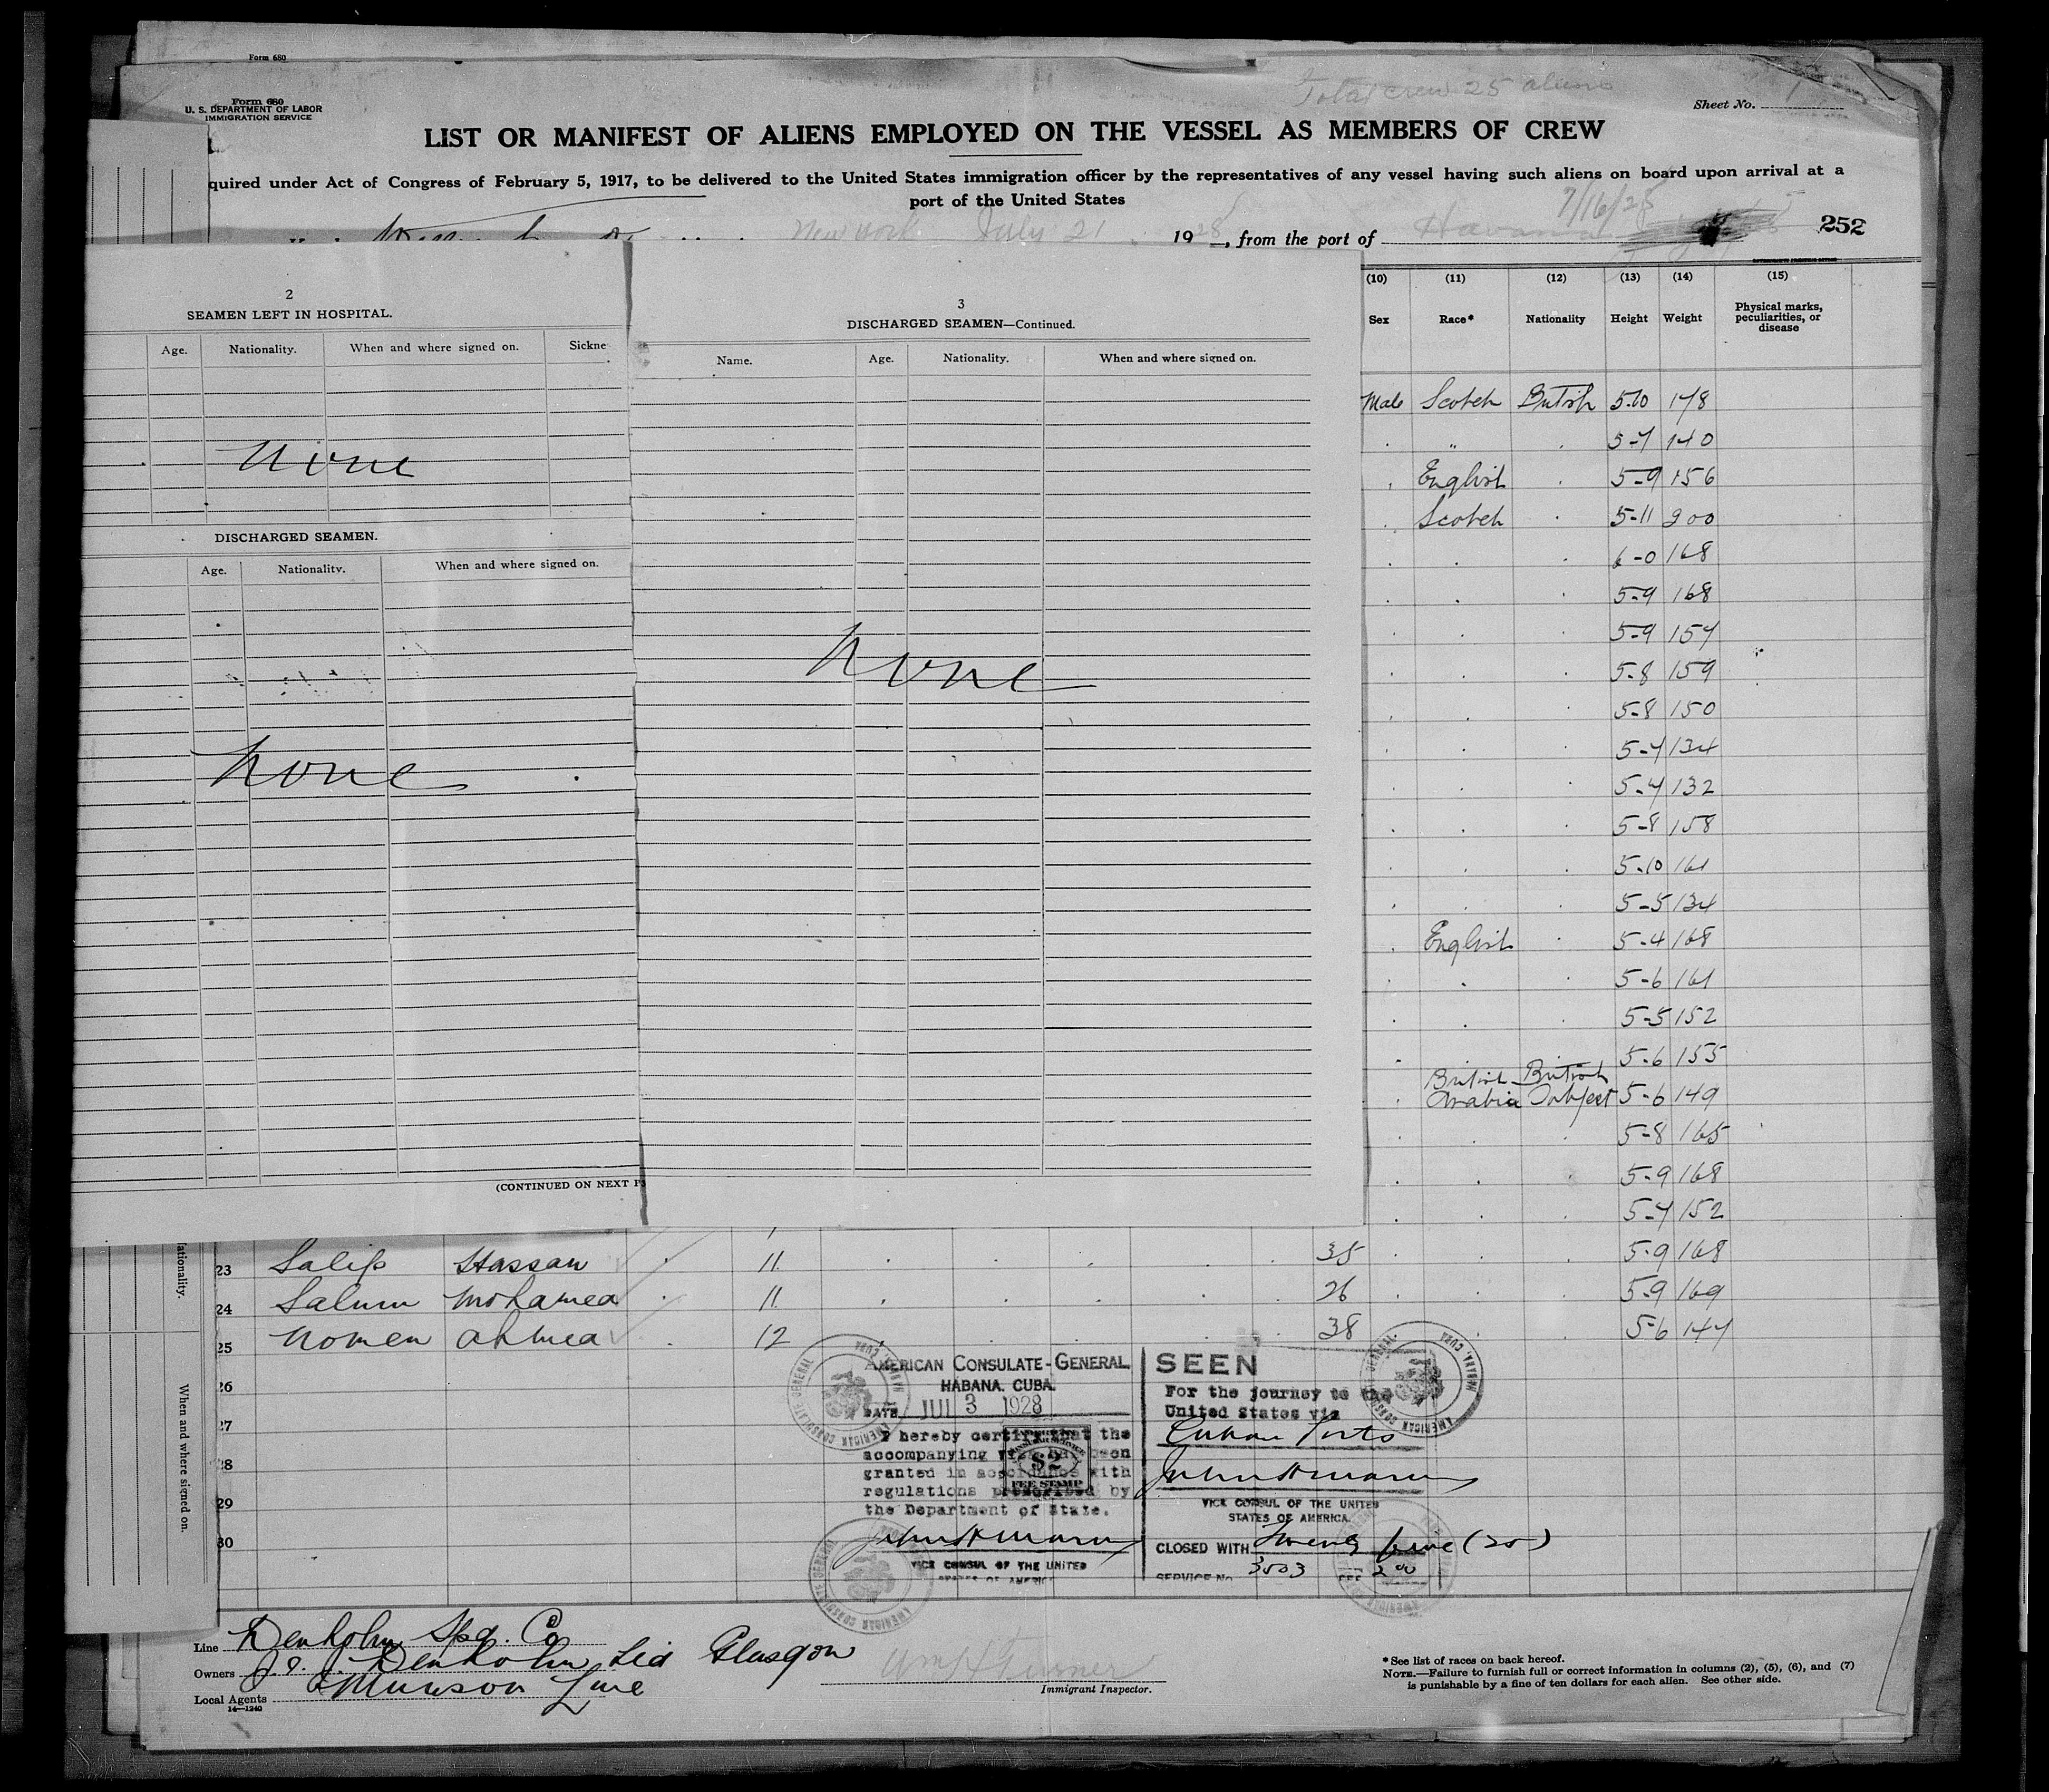 Form 680
Total crew 25 aliens
Form 680
U. S. DEPARTMENT OF LABOR
IMMIGRATION SERVICE
Sheet No. 1
LIST OR MANIFEST OF ALIENS EMPLOYED ON THE VESSEL AS MEMBERS OF CREW
quired under Act of Congress of February 5, 1917, to be delivered to the United States immigration officer by the representatives of any vessel having such aliens on board upon arrival at a
port of the United States
7/16/28
New York July 21, 1928, from the port of Havana
252
2
SEAMEN LEFT IN HOSPITAL.
Age. Nationality. When and where signed on. Sickne
None
DISCHARGED SEAMEN.
Age. Nationality. When and where signed on.
None
(CONTINUED ON NEXT P
3
DISCHARGED SEAMEN—Continued.
Name. Age. Nationality. When and where signed on.
None
(10) (11) (12) (13) (14) (15)
Sex Race* Nationality Height Weight Physical marks, peculiarities, or disease
Male Scotch British 5-10 178
" 5-7 140
English 5-9 156
Scotch 5-11 200
6-0 168
5-9 168
5-9 157
5-8 159
5-8 150
5-7 134
5-4 132
5-8 158
5-10 161
5-5 134
English 5-4 168
5-6 161
5-5 152
5-6 155
British British
Arabia Subject 5-6 149
5-8 165
5-9 168
5-7 152
23 Salip Hassan 11 35 5-9 168
24 Salum Mohamed 11 26 5-9 169
25 Nomen Ahmed 12 38 5-6 147
26
27
28
29
30
ationality.
When and where signed on.
AMERICAN CONSULATE-GENERAL
HABANA, CUBA.
DATE JUL 3 1928
I hereby certify that the
accompanying visa has been
granted in accordance with
regulations prescribed by
the Department of State.
$2
FEE STAMP
VICE CONSUL OF THE UNITED
STATES OF AMERICA
SEEN
For the journey to the
United States via
Cuban Ports
VICE CONSUL OF THE UNITED
STATES OF AMERICA.
CLOSED WITH Twenty five (25)
SERVICE No. 3503 FEE 2.00
AMERICAN CONSULATE GENERAL HABANA, CUBA
Line Denholm Spg. Co
Owners J. & J. Denholm Ltd Glasgow
Local Agents Munson Line
14—1240
Immigrant Inspector.
*See list of races on back hereof.
NOTE.—Failure to furnish full or correct information in columns (2), (5), (6), and (7)
is punishable by a fine of ten dollars for each alien. See other side.